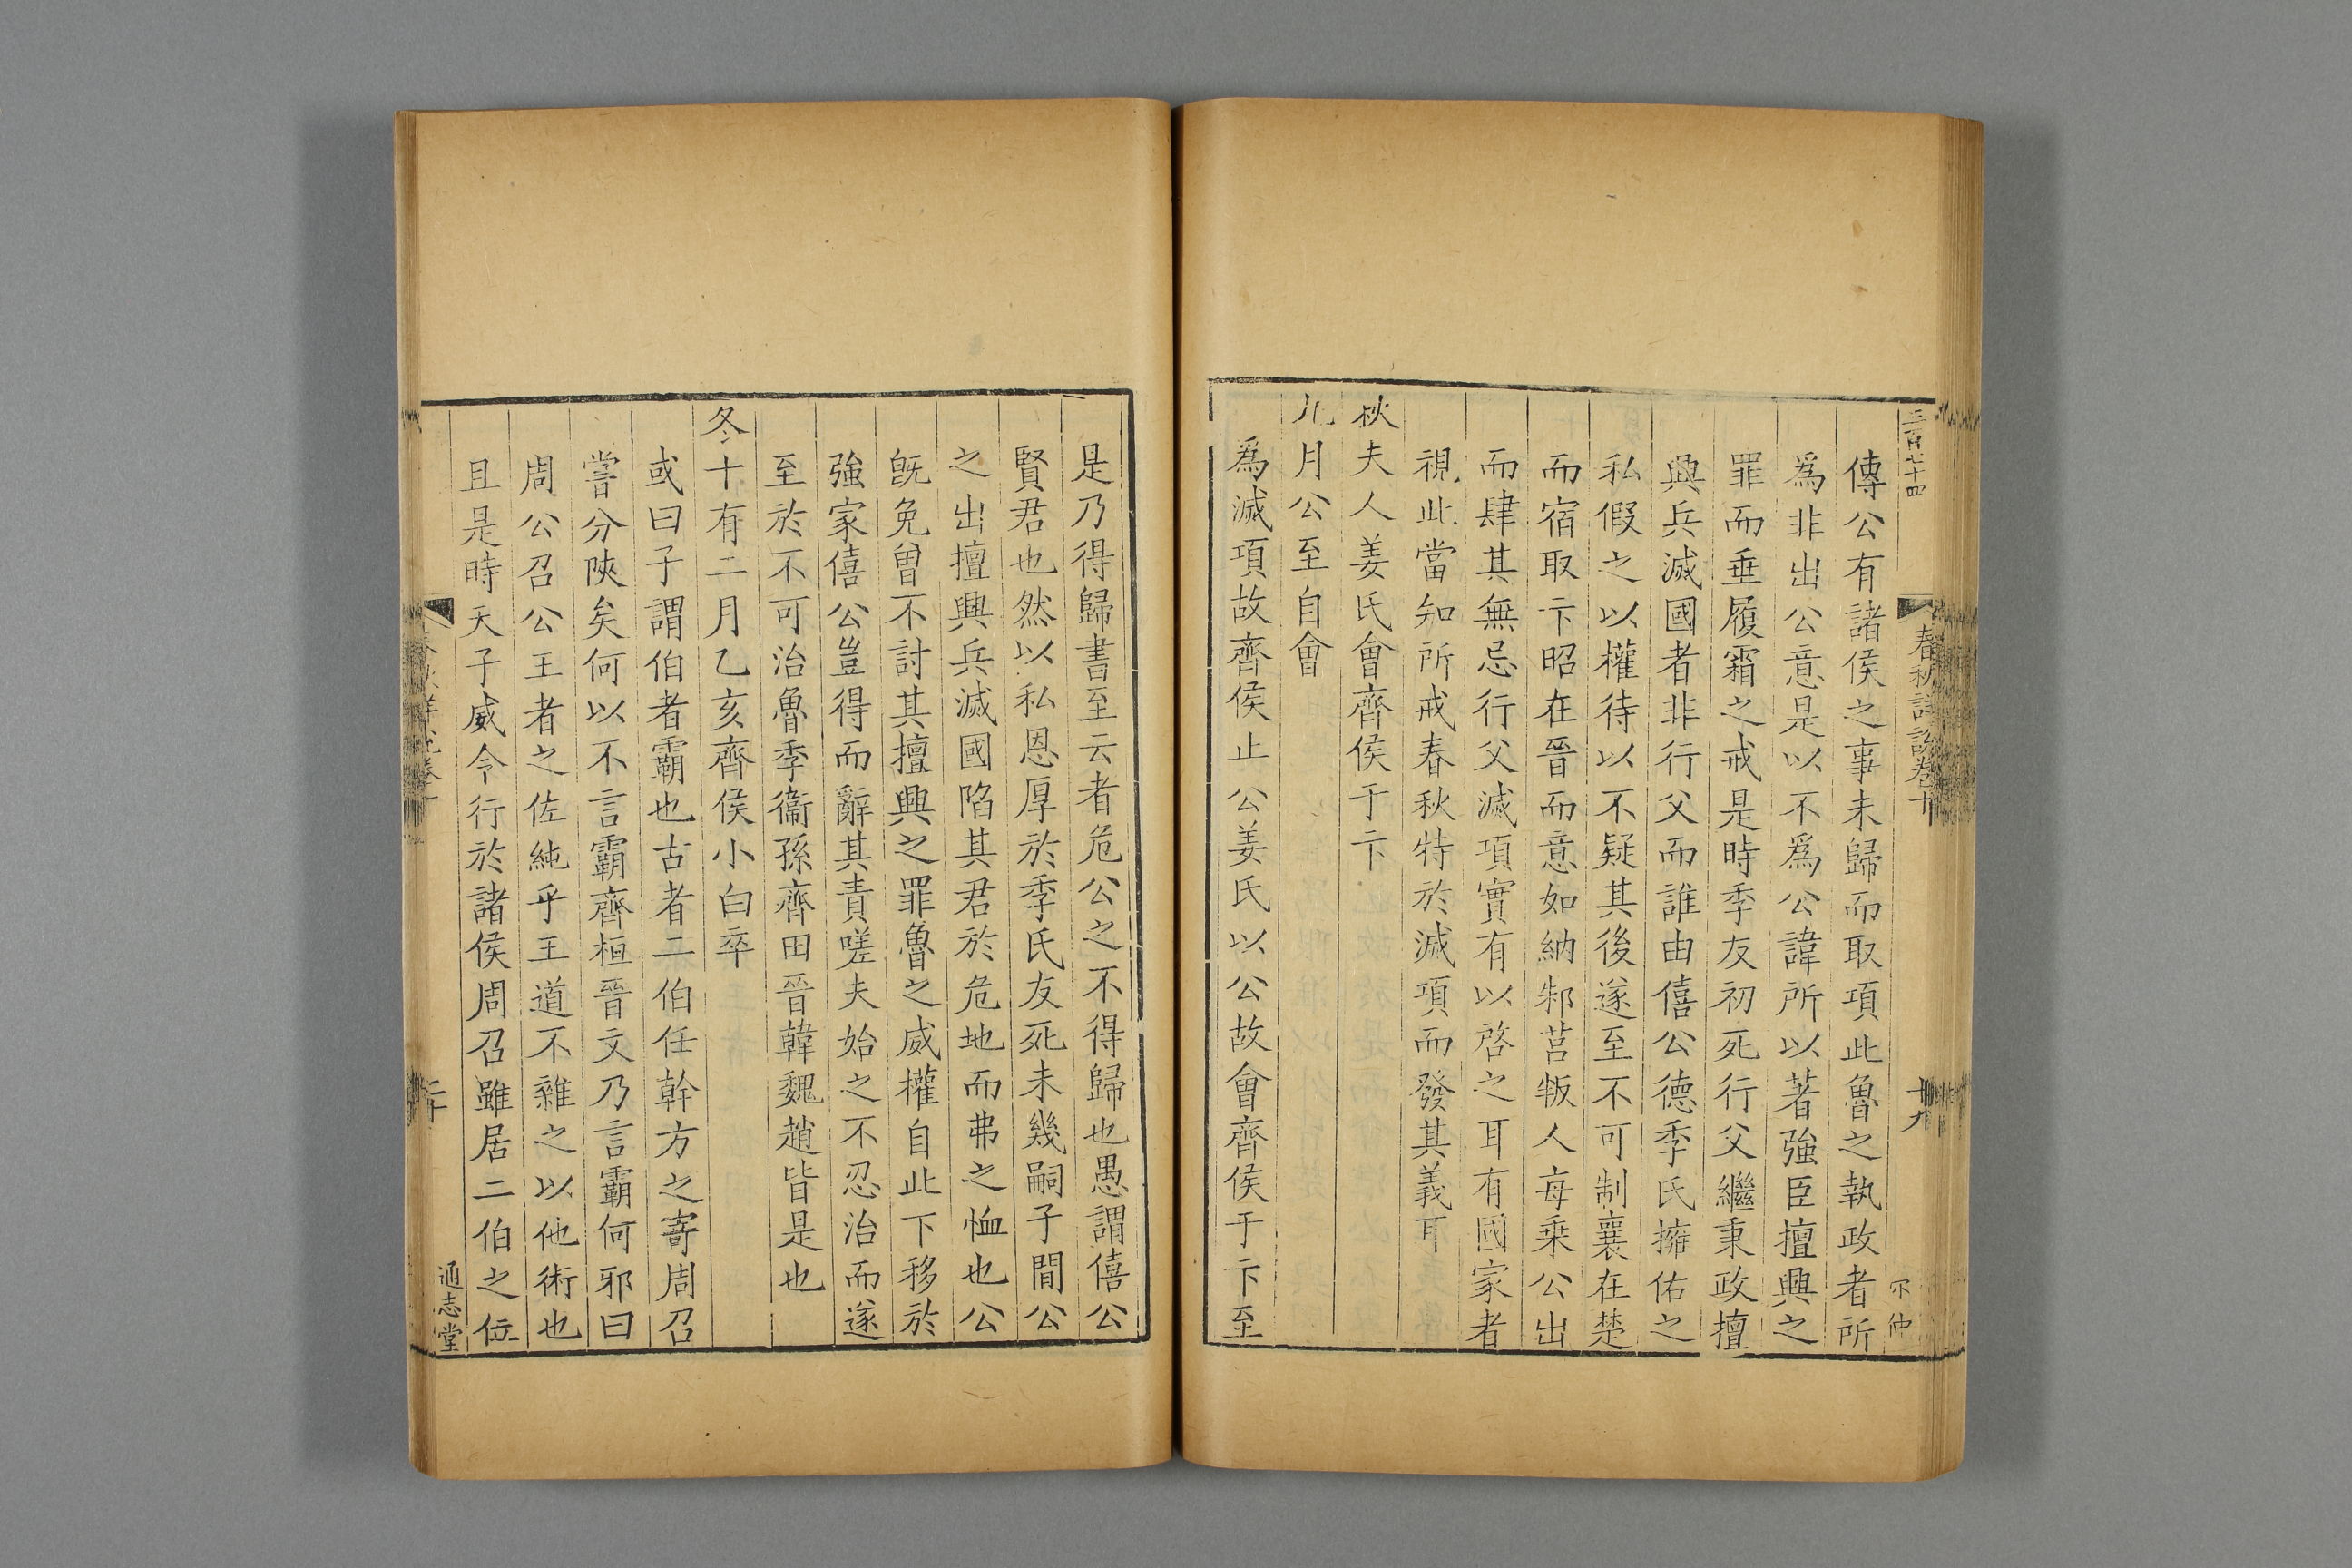 三百七十四
春秋詳說卷十
十九
傳公有諸侯之事未歸而取項此魯之執政者所
爲非出公意是以不爲公諱所以著強臣擅興之
罪而垂履霜之戒是時季友初死行父繼秉政擅
興兵滅國者非行父而誰由僖公德季氏擁佑之
私假之以權待以不疑其後遂至不可制襄在楚
而宿取卞昭在晉而意如納邾莒叛人每乘公出
而肆其無忌行父滅項實有以啓之耳有國家者
視此當知所戒春秋特於滅項而發其義耳
秋夫人姜氏會齊侯于卞
九月公至自會
爲滅項故齊侯止公姜氏以公故會齊侯于卞至
是乃得歸書至云者危公之不得歸也愚謂僖公
賢君也然以私恩厚於季氏友死未幾嗣子間公
之出擅興兵滅國陷其君於危地而弗之恤也公
旣免曾不討其擅興之罪魯之威權自此下移於
強家僖公豈得而辭其責嗟夫始之不忍治而遂
至於不可治魯季衞孫齊田晉韓魏趙皆是也
冬十有二月乙亥齊侯小白卒
或曰子謂伯者霸也古者二伯任幹方之寄周召
嘗分陝矣何以不言霸齊桓晉文乃言霸何邪曰
周公召公王者之佐純乎王道不雜之以他術也
且是時天子威令行於諸侯周召雖居二伯之位
通志堂